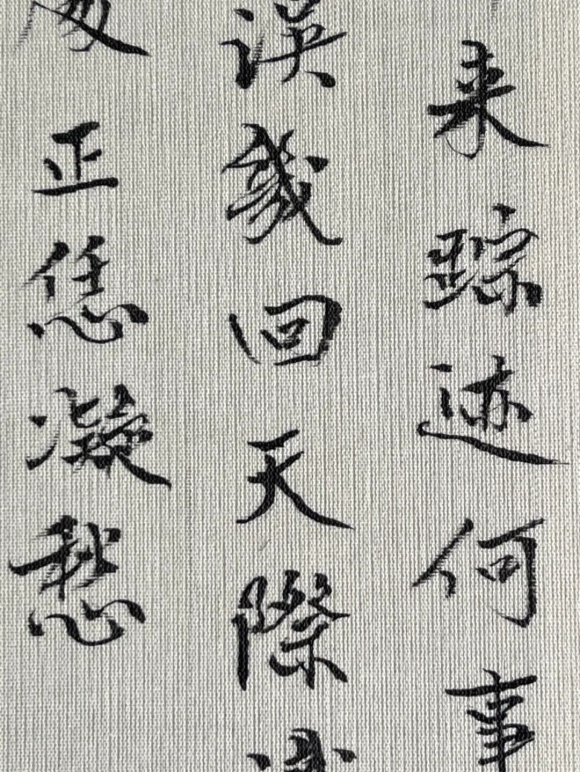 来踪迹何事
误幾回天際
正恁凝愁